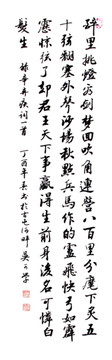 醉里挑燈看劍夢回吹角連營八百里分麾下炙五
十弦翻塞外聲沙場秋點兵馬作的盧飛快弓如霹
靂弦驚了却君王天下事贏得生前身後名可憐白
髮生 錄辛弃疾詞一首 丁酉年